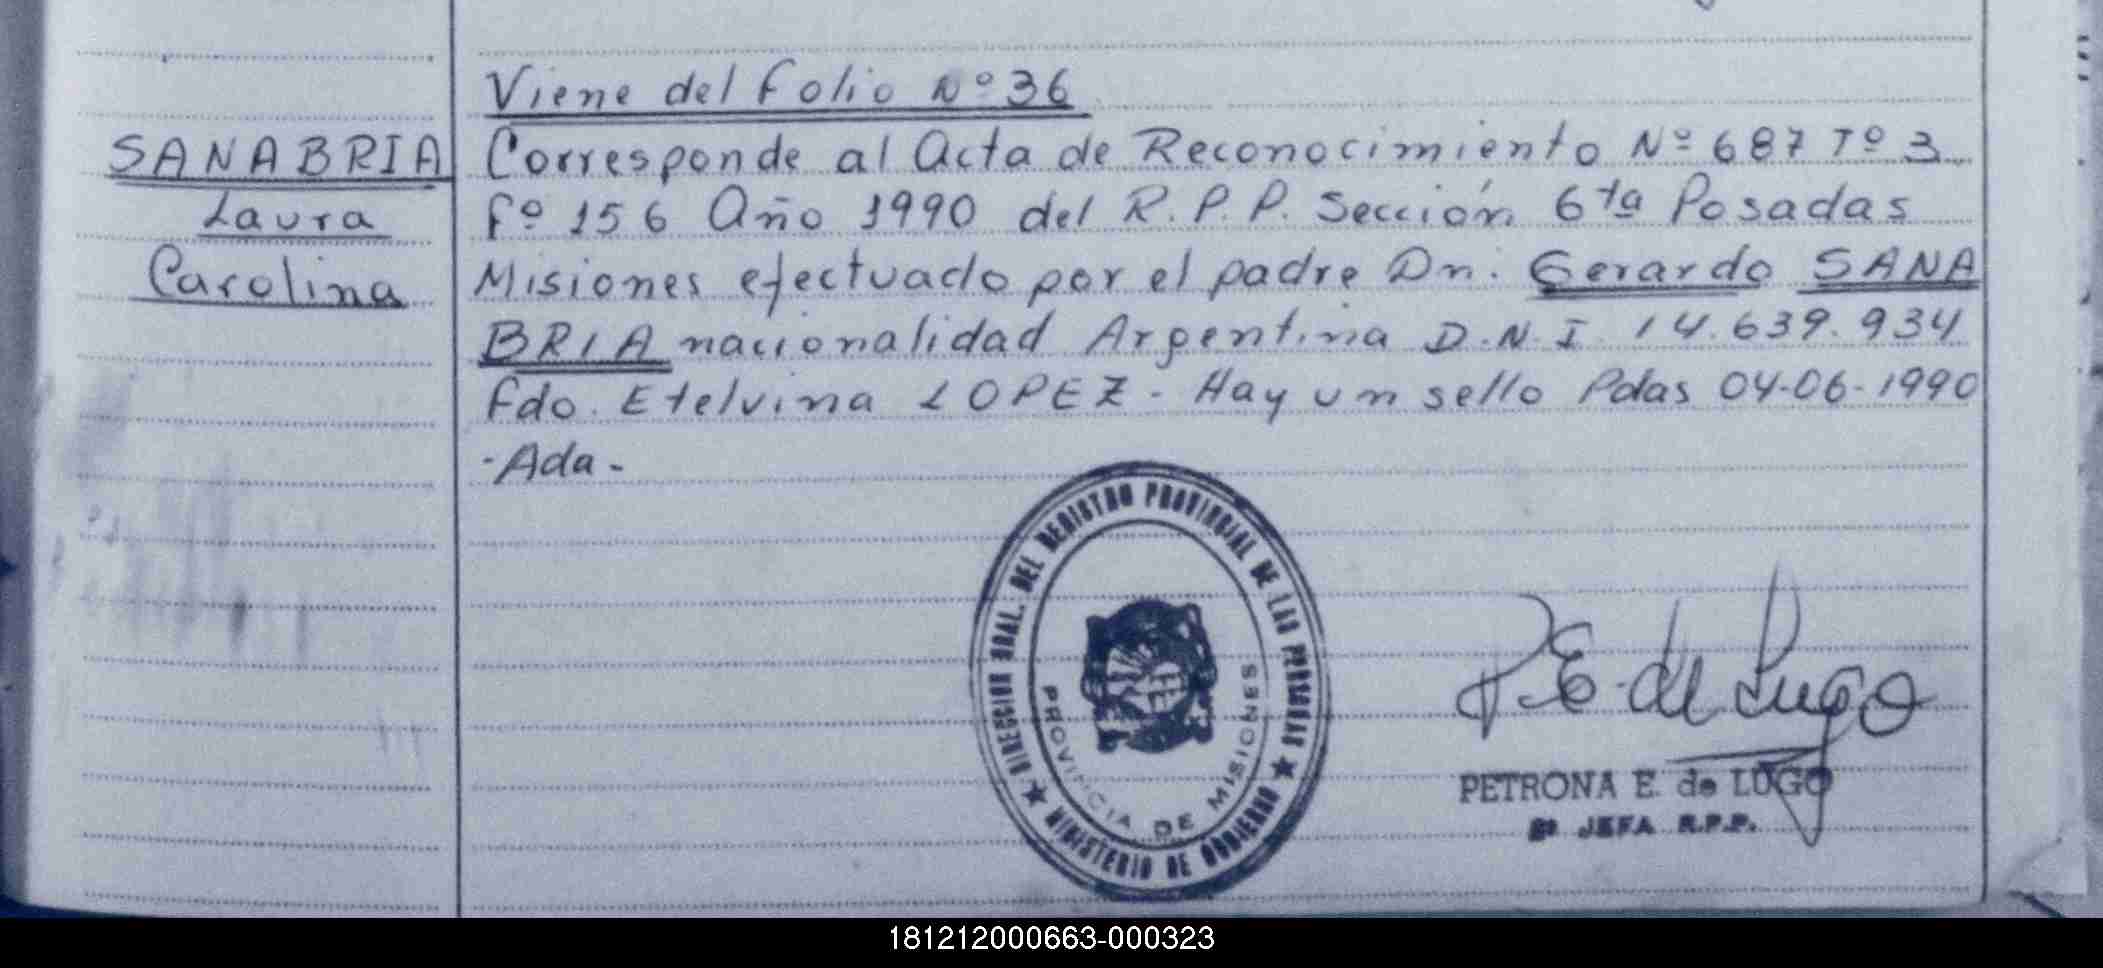 Viene del Folio Nº 36
SANABRIA
Laura
Carolina
Corresponde al Acta de Reconocimiento Nº 687 Tº 3
Fº 156 Año 1990 del R.P.P. Sección 6ta Posadas
Misiones efectuado por el padre Dn. Gerardo SANA
BRIA nacionalidad Argentina D.N.I. 14.639.934
Fdo. Etelvina LOPEZ - Hay un sello Pdas 04-06-1990
-Ada-
DIRECCION GRAL. DEL REGISTRO PROVINCIAL DE LAS PERSONAS
MINISTERIO DE GOBIERNO
PROVINCIA DE MISIONES
P.E. de Lugo
PETRONA E. de LUGO
2ª JEFA R.P.P.
181212000663-000323